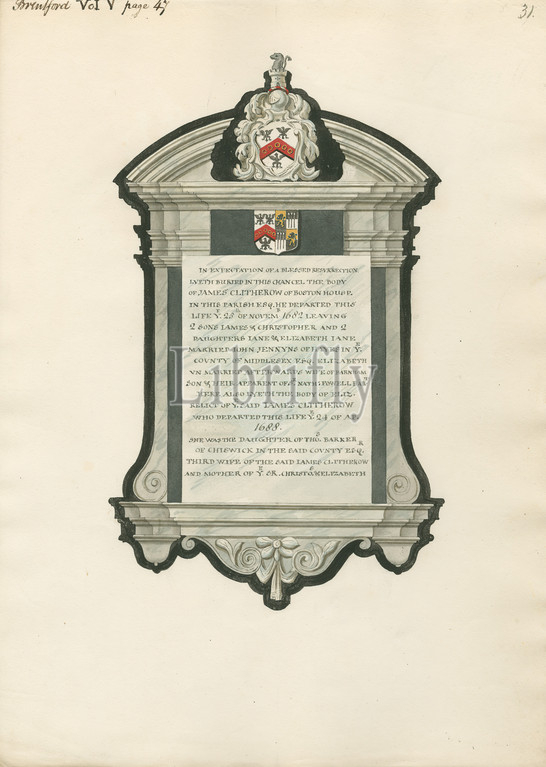 Brentford Vol V page 47
31.
IN EXPECTATION OF A BLESSED RESURRECTION
LYETH BURIED IN THIS CHANCEL THE BODY
OF JAMES CLITHEROW OF BOSTON HOUSE
IN THIS PARISH ESQ. HE DEPARTED THIS
LIFE Y. 25 OF NOVEM 1682 LEAVING
2 SONS IAMES & CHRISTOPHER AND 2
DAUGHTERS IANE & ELIZABETH IANE
MARRIED IOHN JENNYNS OF IN Y.
COUNTY OF MIDDLESEX ESQ. ELIZABETH
WIFE OF
SON & HEIR APPARENT OF S. NATH: POWELL
HERE ALSO LYETH THE BODY OF ELIZ.
RELICT OF Y. SAID IAMES CLITHEROW
WHO DEPARTED THIS LIFE Y. 24 OF AP.
1688.
SHE WAS THE DAUGHTER OF THO. BARKER
OF CHISWICK IN THE SAID COUNTY ESQ.
THIRD WIFE OF THE SAID IAMES CLITHEROW
AND MOTHER OF Y. SR. CHRISTO. & ELIZABETH
Librifly